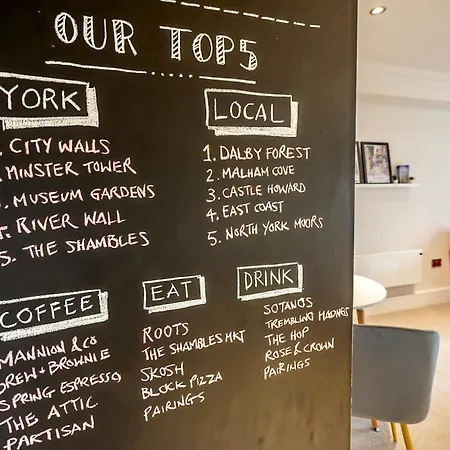 OUR TOP 5
YORK
CITY WALLS
MINSTER TOWER
MUSEUM GARDENS
RIVER WALL
5. THE SHAMBLES
LOCAL
1. DALBY FOREST
2. MALHAM COVE
3. CASTLE HOWARD
4. EAST COAST
5. NORTH YORK MOORS
COFFEE
MANNION & CO
BREW + BROWNIE
SPRING ESPRESSO
THE ATTIC
PARTISAN
EAT
ROOTS
THE SHAMBLES MKT
SKOSH
BLOCK PIZZA
PAIRINGS
DRINK
SOTANOS
TREMBLING MADNESS
THE HOP
ROSE & CROWN
PAIRINGS